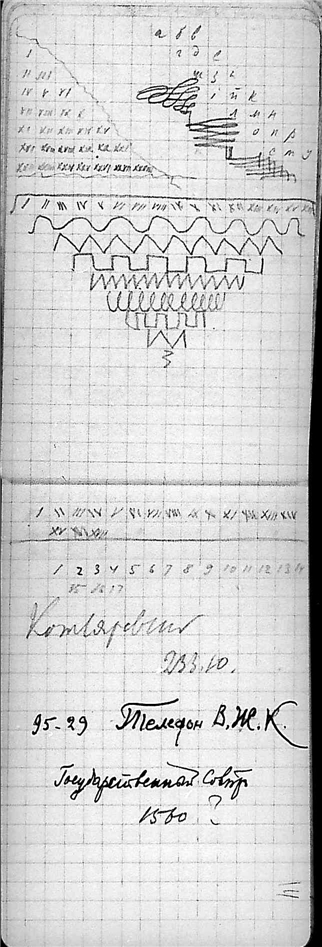 а б в
г д е
ж з и
і й к
л м н
о п р
с т у
I
II III
IV V VI
VII VIII IX X
XI XII XIII XIV XV
XVI XVII XVIII XIX XX XXI
I II III IV V VI VII VIII IX X XI XII XIII XIV XV XVI
I II III IV V VI VII VIII IX X XI XII XIII XIV
XV XVI XVII
1 2 3 4 5 6 7 8 9 10 11 12 13 14
15 16 17
Котляревский
233.10.
95-29 Телефон В. Ж. К.
Государственный Совѣтъ
1500 ?